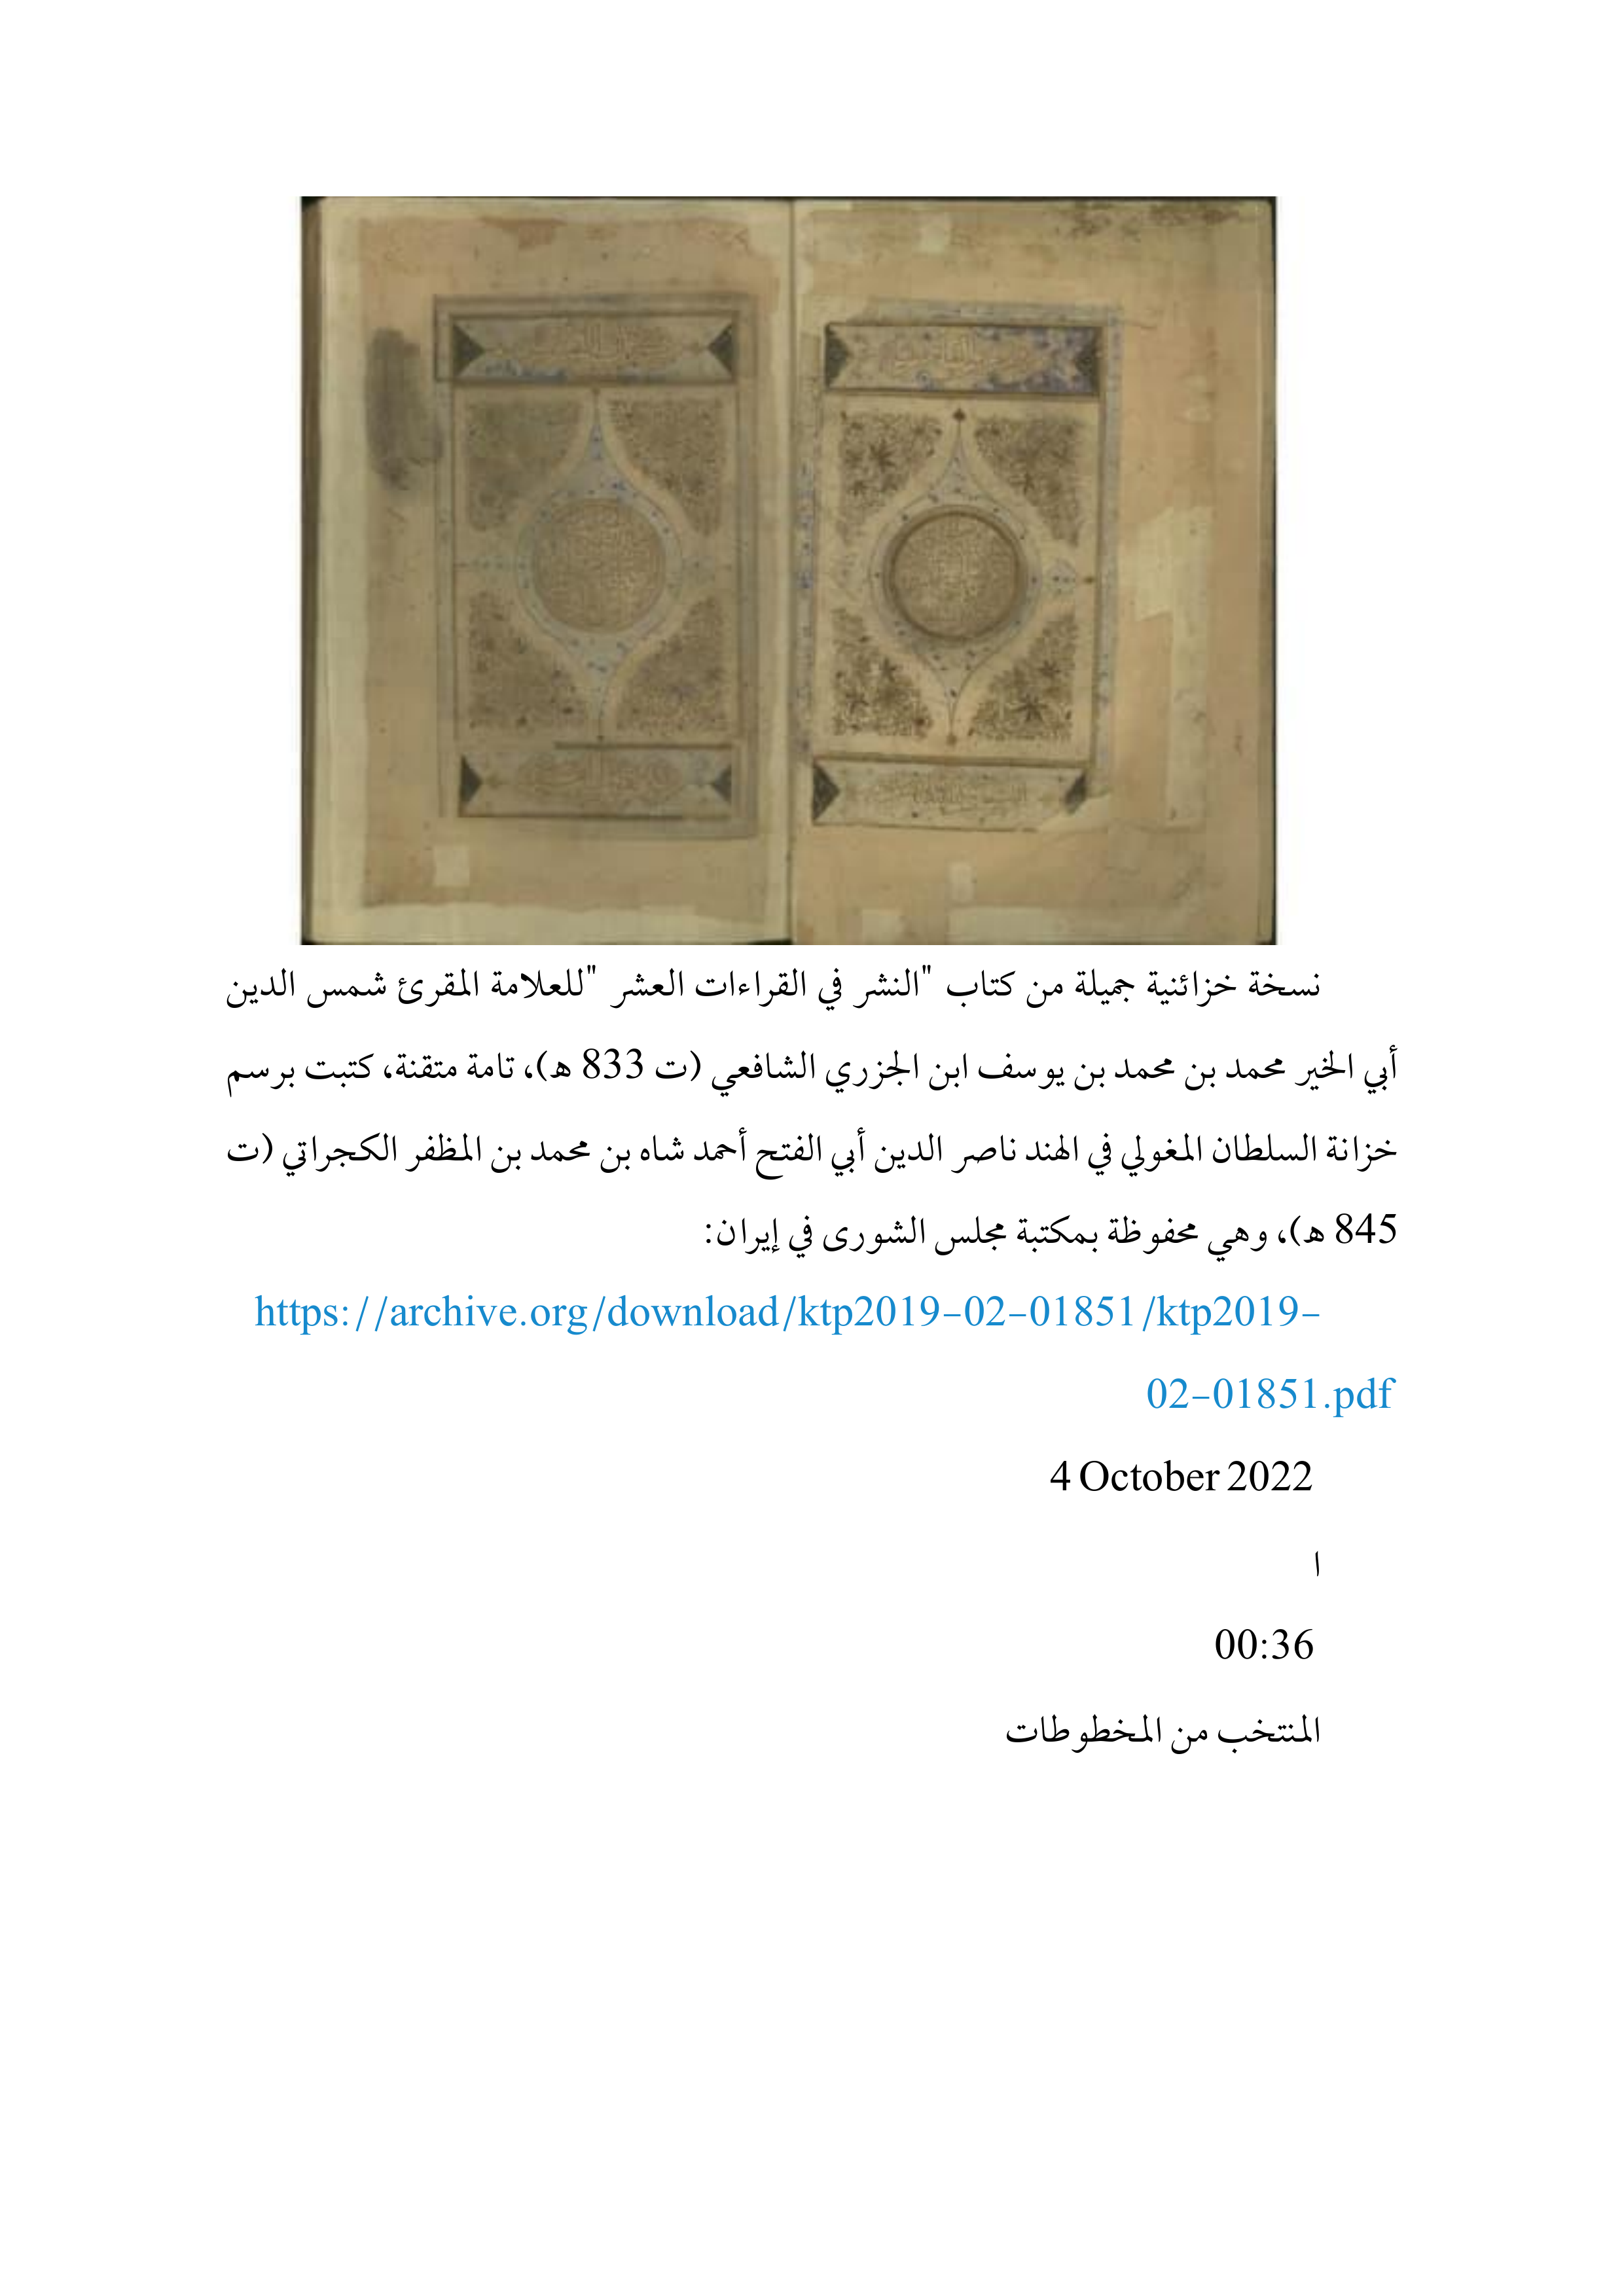 نسخة خزائنية جميلة من كتاب "النشر في القراءات العشر "للعلامة المقرئ شمس الدين
أبي الخير محمد بن محمد بن يوسف ابن الجزري الشافعي (ت 833 ه)، تامة متقنة، كتبت برسم
خزانة السلطان المغولي في الهند ناصر الدين أبي الفتح أحمد شاه بن محمد بن المظفر الكجراتي (ت
845 ه)، وهي محفوظة بمكتبة مجلس الشورى في إيران:
https://archive.org/download/ktp2019-02-01851/ktp2019-
02-01851.pdf
4 October 2022
ا
00:36
المنتخب من المخطوطات